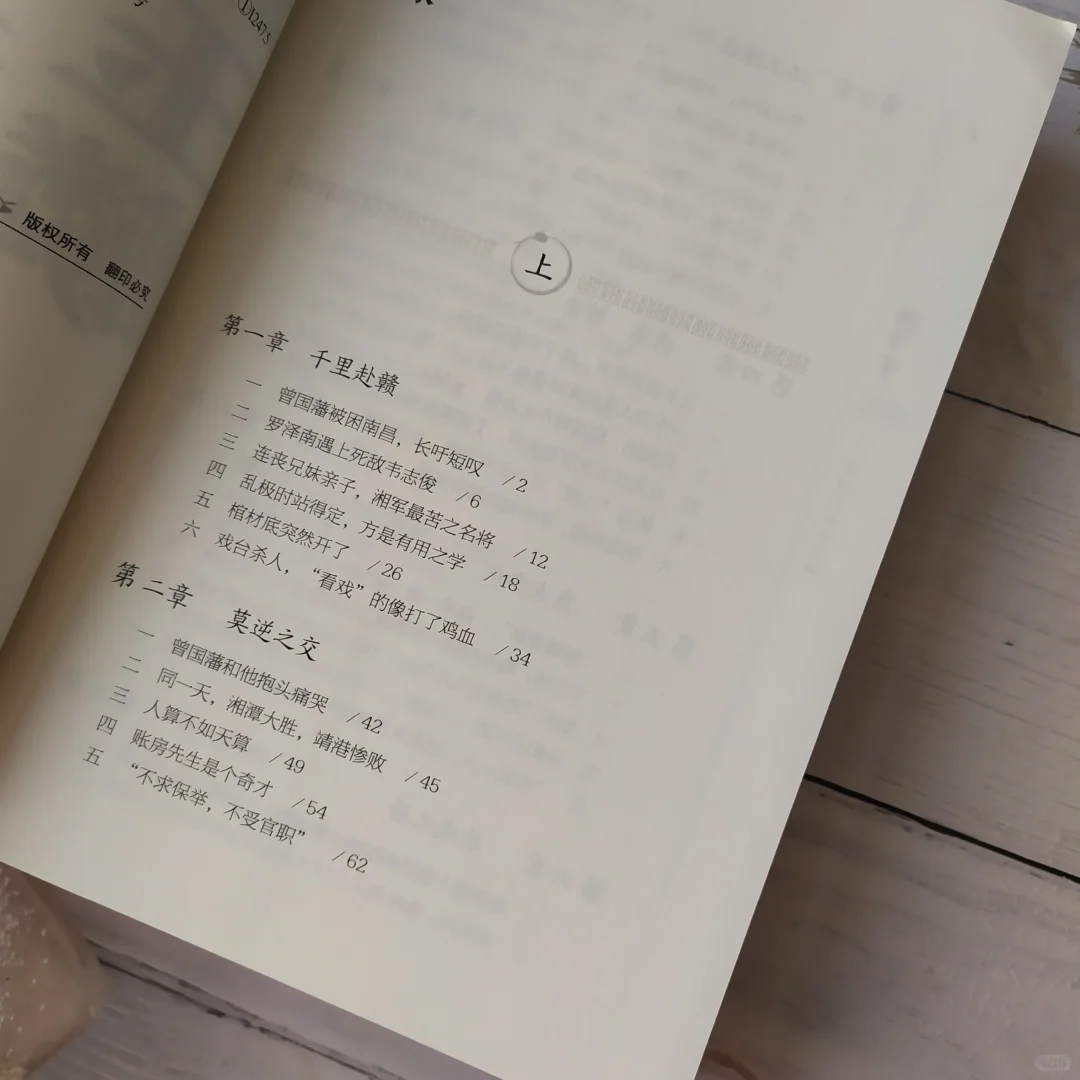 ①I247.5
版权所有 翻印必究
上
第一章 千里赴赣
一 曾国藩被困南昌，长吁短叹 /2
二 罗泽南遇上死敌韦志俊 /6
三 连丧兄妹亲子，湘军最苦之名将 /12
四 乱极时站得定，方是有用之学 /18
五 棺材底突然开了 /26
六 戏台杀人，“看戏”的像打了鸡血 /34
第二章 莫逆之交
一 曾国藩和他抱头痛哭 /42
二 同一天，湘潭大胜，靖港惨败 /45
三 人算不如天算 /49
四 账房先生是个奇才 /54
五 “不求保举，不受官职” /62